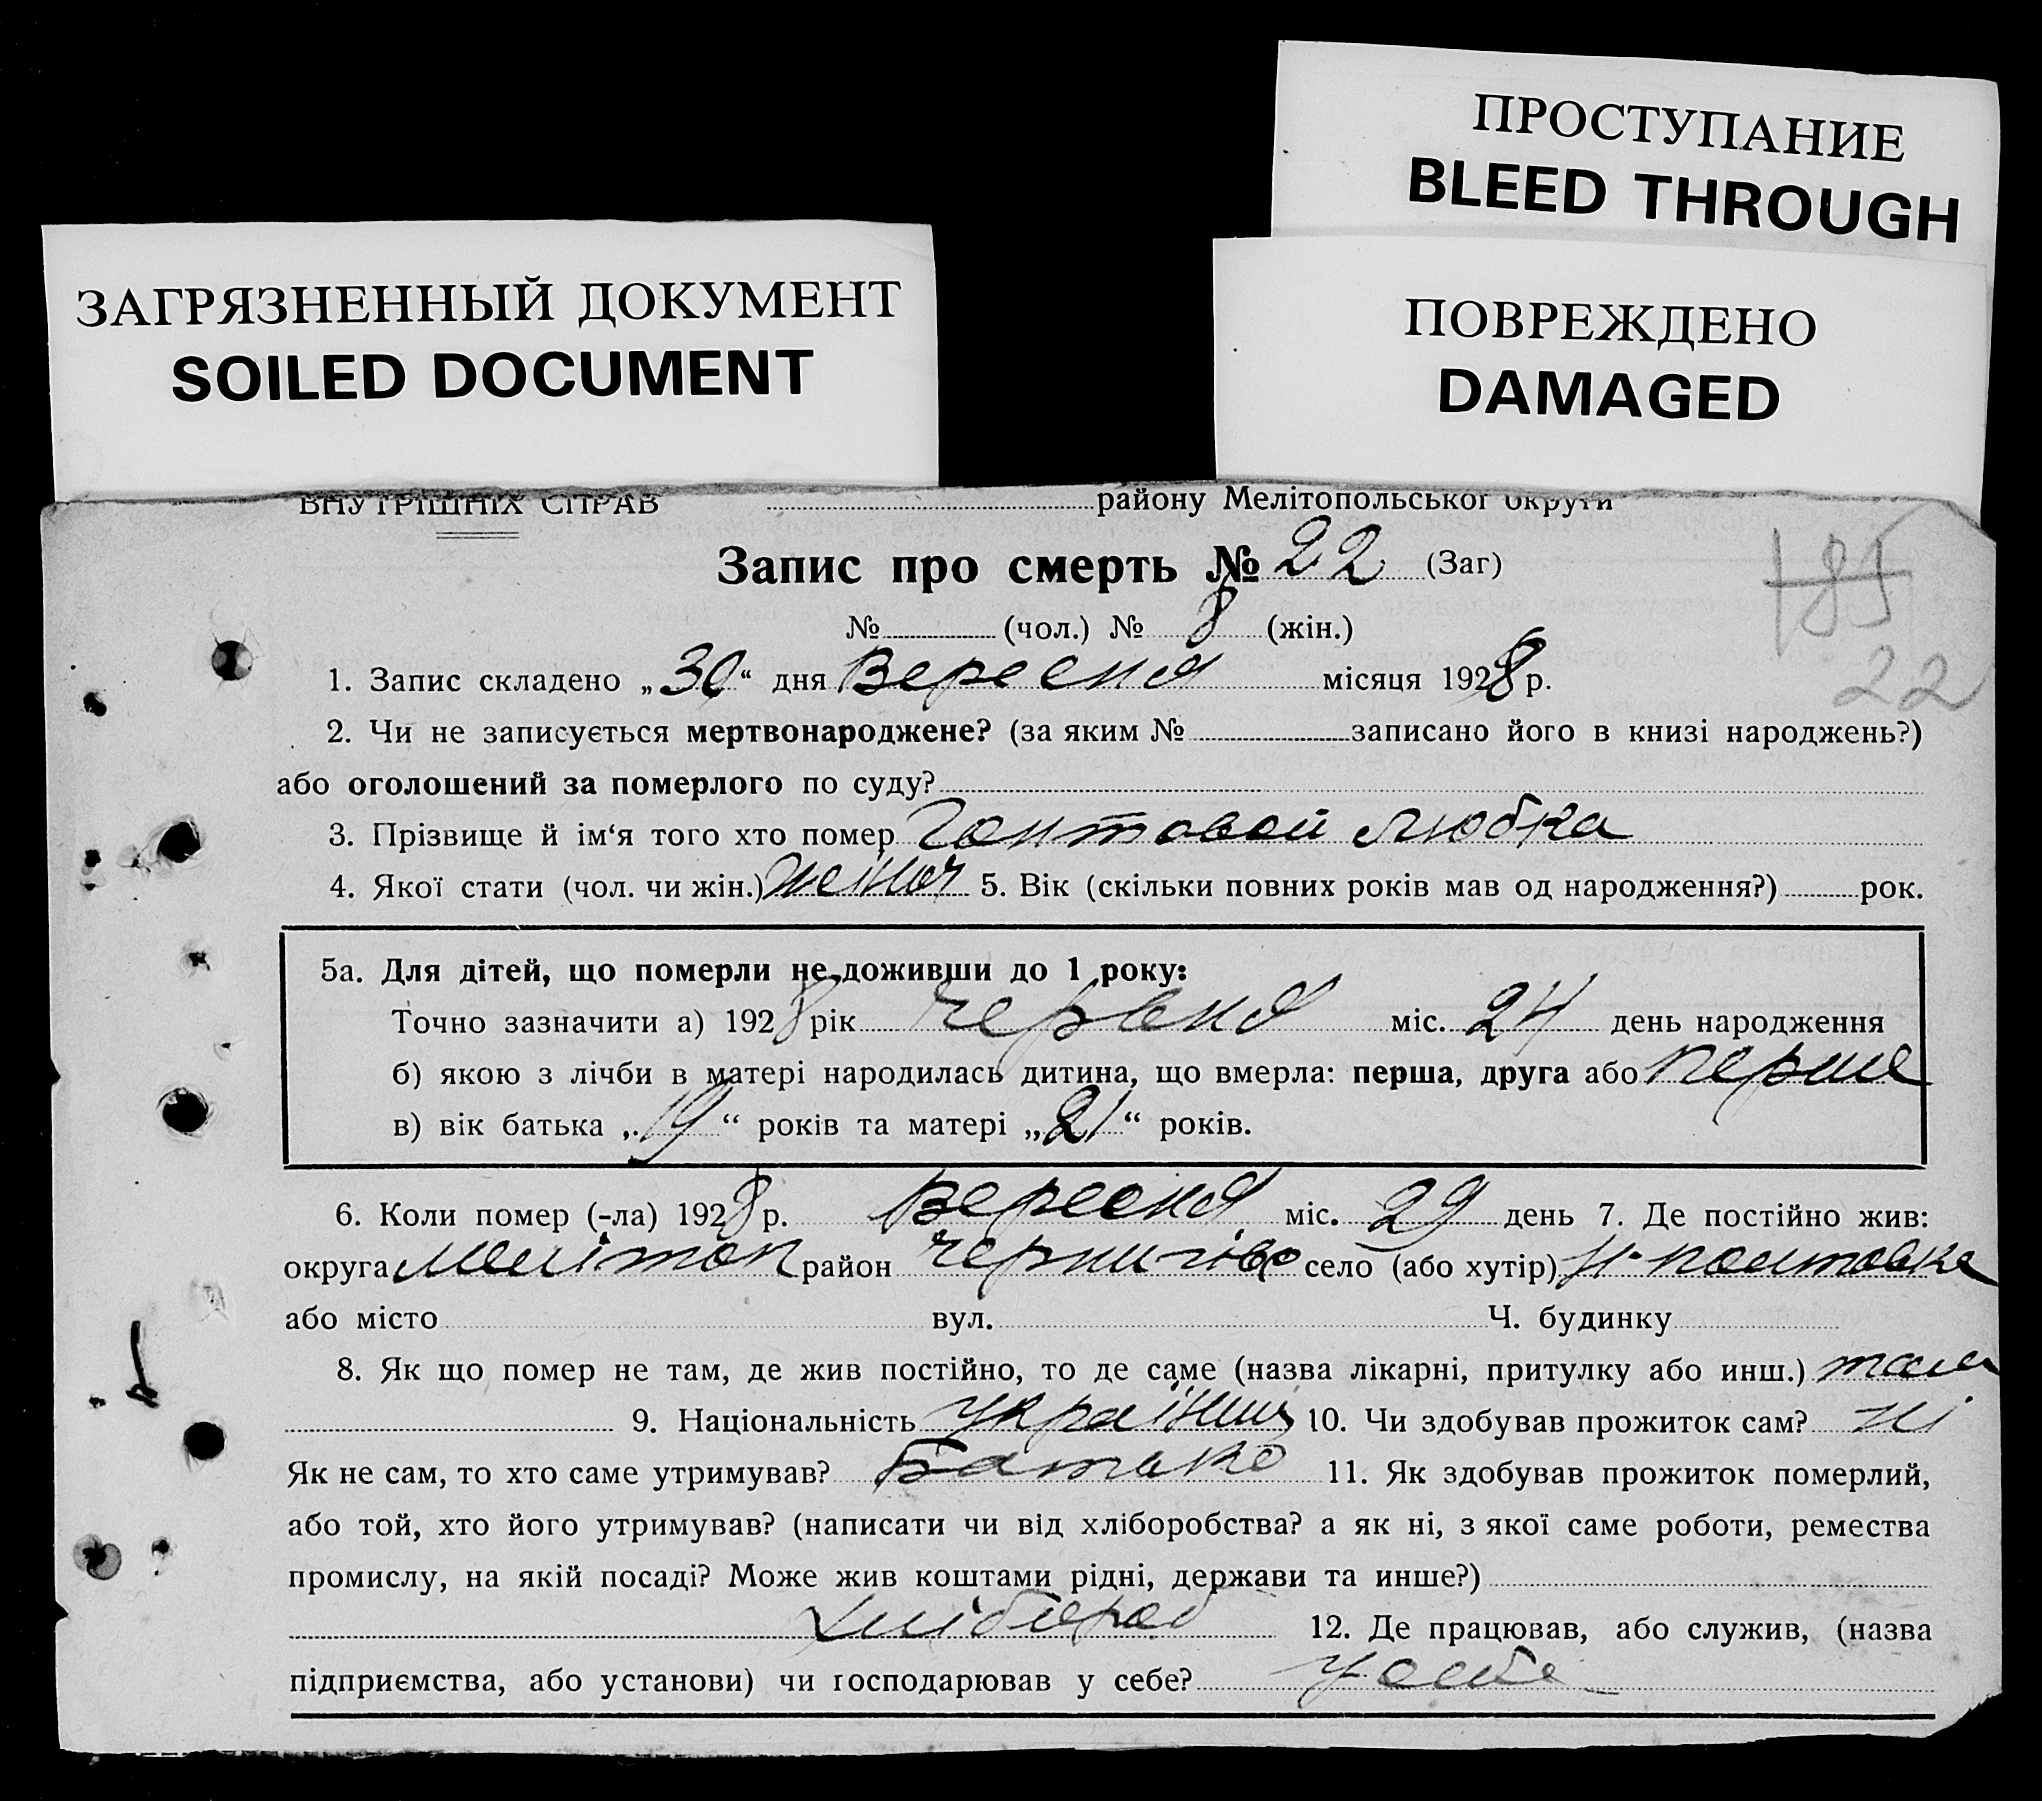 ПРОСТУПАНИЕ
BLEED THROUGH
ЗАГРЯЗНЕННЫЙ ДОКУМЕНТ
SOILED DOCUMENT
ПОВРЕЖДЕНО
DAMAGED
ВНУТРІШНІХ СПРАВ району Мелітопольської округи
Запис про смерть № 22 (Заг)
185
№ (чол.) № 8 (жін.)
22
1. Запис складено „30“ дня Вересня місяця 1928 р.
2. Чи не записується мертвонароджене? (за яким № записано його в книзі народжень?)
або оголошений за померлого по суду?
3. Прізвище й ім‘я того хто помер Гонтовой Любка
4. Якої стати (чол. чи жін.) жіноч 5. Вік (скільки повних років мав од народження?) рок.
5а. Для дітей, що померли не доживши до 1 року:
Точно зазначити а) 1928 рік червня міс. 24 день народження
б) якою з лічби в матері народилась дитина, що вмерла: перша, друга або перше
в) вік батька „19“ років та матері „21“ років.
6. Коли помер (-ла) 1928 р. Вересня міс. 29 день 7. Де постійно жив:
округа Мелітоп район Чернигівс село (або хутір) Н-Полтовка
або місто вул. Ч. будинку
8. Як що помер не там, де жив постійно, то де саме (назва лікарні, притулку або инш.) там
9. Національність українц 10. Чи здобував прожиток сам? ні
Як не сам, то хто саме утримував? Батько 11. Як здобував прожиток померлий,
або той, хто його утримував? (написати чи від хліборобства? а як ні, з якої саме роботи, ремества
промислу, на якій посаді? Може жив коштами рідні, держави та инше?)
хлібороб 12. Де працював, або служив, (назва
підприємства, або установи) чи господарював у себе? у себе